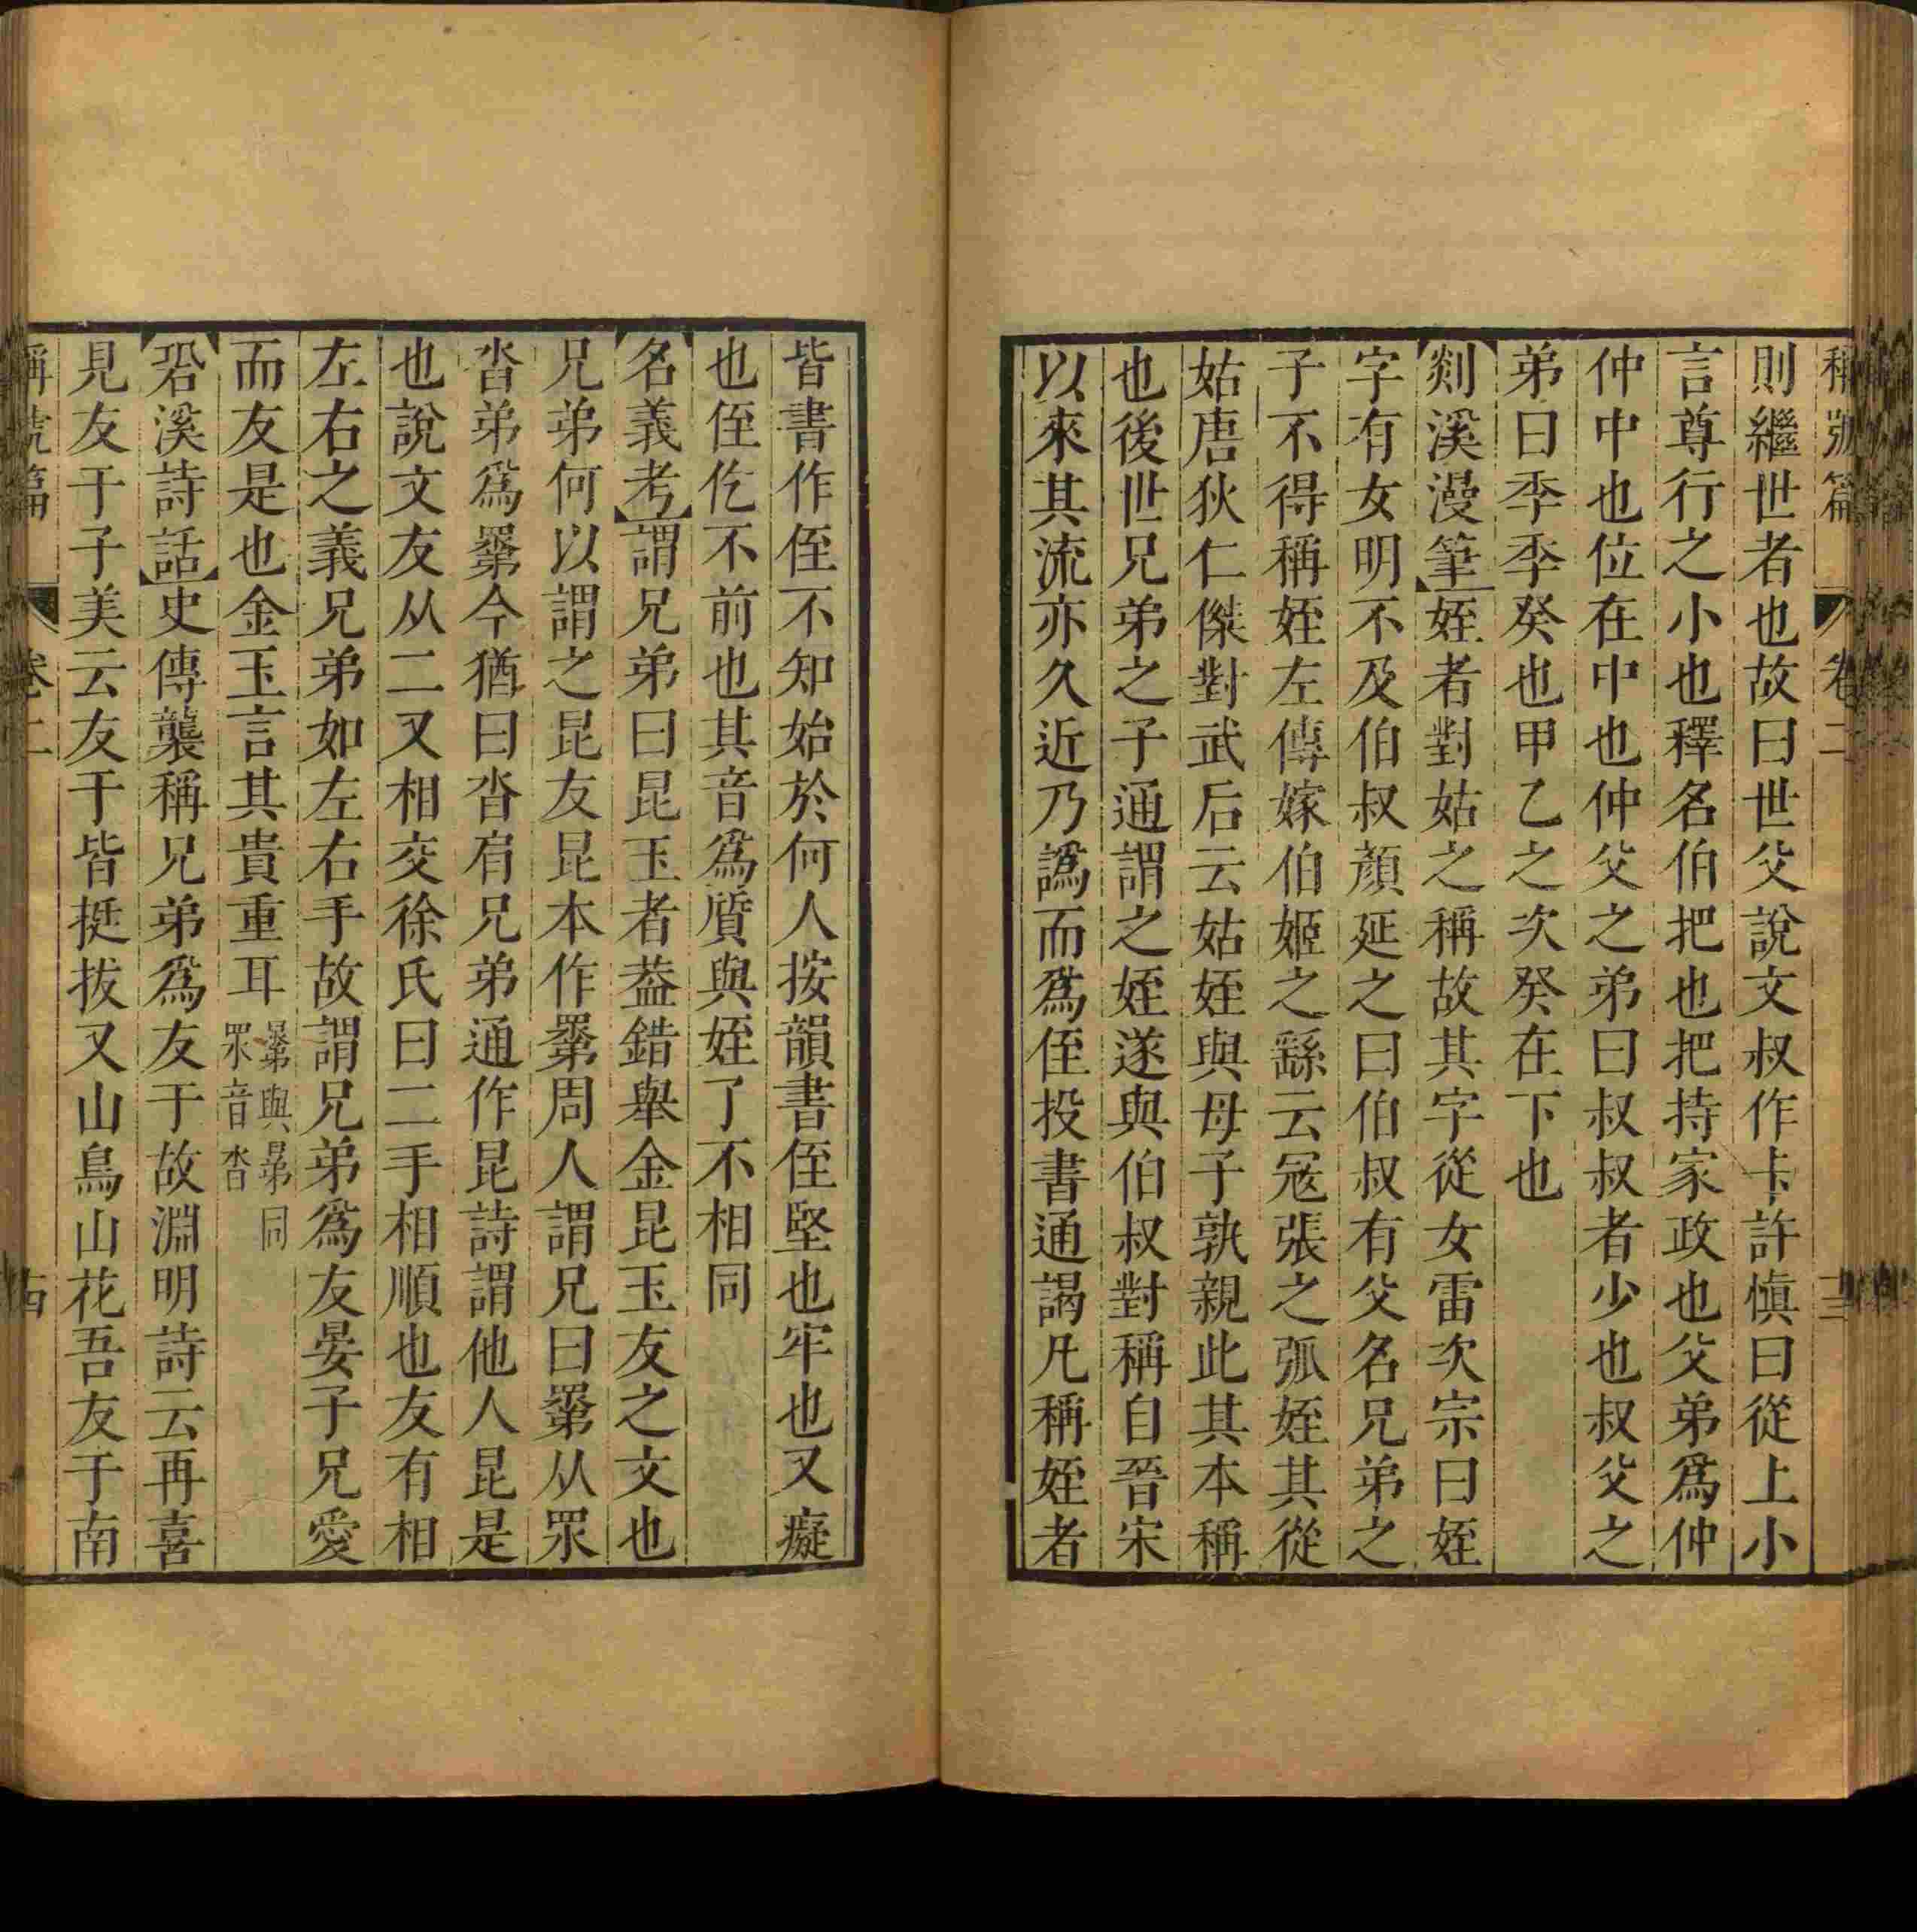 稱號篇 卷二 十三
則繼世者也故曰世父說文叔作尗許愼曰從上小
言尊行之小也釋名伯把也把持家政也父弟爲仲
仲中也位在中也仲父之弟曰叔叔者少也叔父之
弟曰季季癸也甲乙之次癸在下也
【剡溪漫筆】姪者對姑之稱故其字從女雷次宗曰姪
字有女明不及伯叔顏延之曰伯叔有父名兄弟之
子不得稱姪左傳嫁伯姬之繇云寇張之弧姪其從
姑唐狄仁傑對武后云姑姪與母子孰親此其本稱
也後世兄弟之子通謂之姪遂與伯叔對稱自晉宋
以來其流亦久近乃譌而爲侄投書通謁凡稱姪者
皆書作侄不知始於何人按韻書侄堅也牢也又癡
也侄仡不前也其音爲質與姪了不相同
【名義考】謂兄弟曰昆玉者葢錯舉金昆玉友之文也
兄弟何以謂之昆友昆本作𦌾周人謂兄曰𦌾从眔
眔弟爲𦌾今猶曰眔肩兄弟通作昆詩謂他人昆是
也說文友从二又相交徐氏曰二手相順也友有相
左右之義兄弟如左右手故謂兄弟爲友晏子兄愛
而友是也金玉言其貴重耳𦌾與晜同眔音沓
【䂬溪詩話】史傳襲稱兄弟爲友于故淵明詩云再喜
見友于子美云友于皆挺拔又山鳥山花吾友于南
稱號篇 卷二 十四